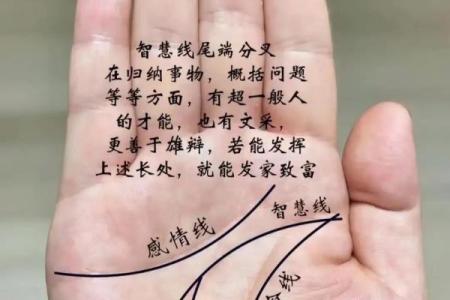 智慧线尾端分叉
在归纳事物，概括问题
等等方面，有超一般人
的才能，也有文采，
更善于雄辩，若能发挥
上述长处，就能发家致富
智慧线
感情线
线